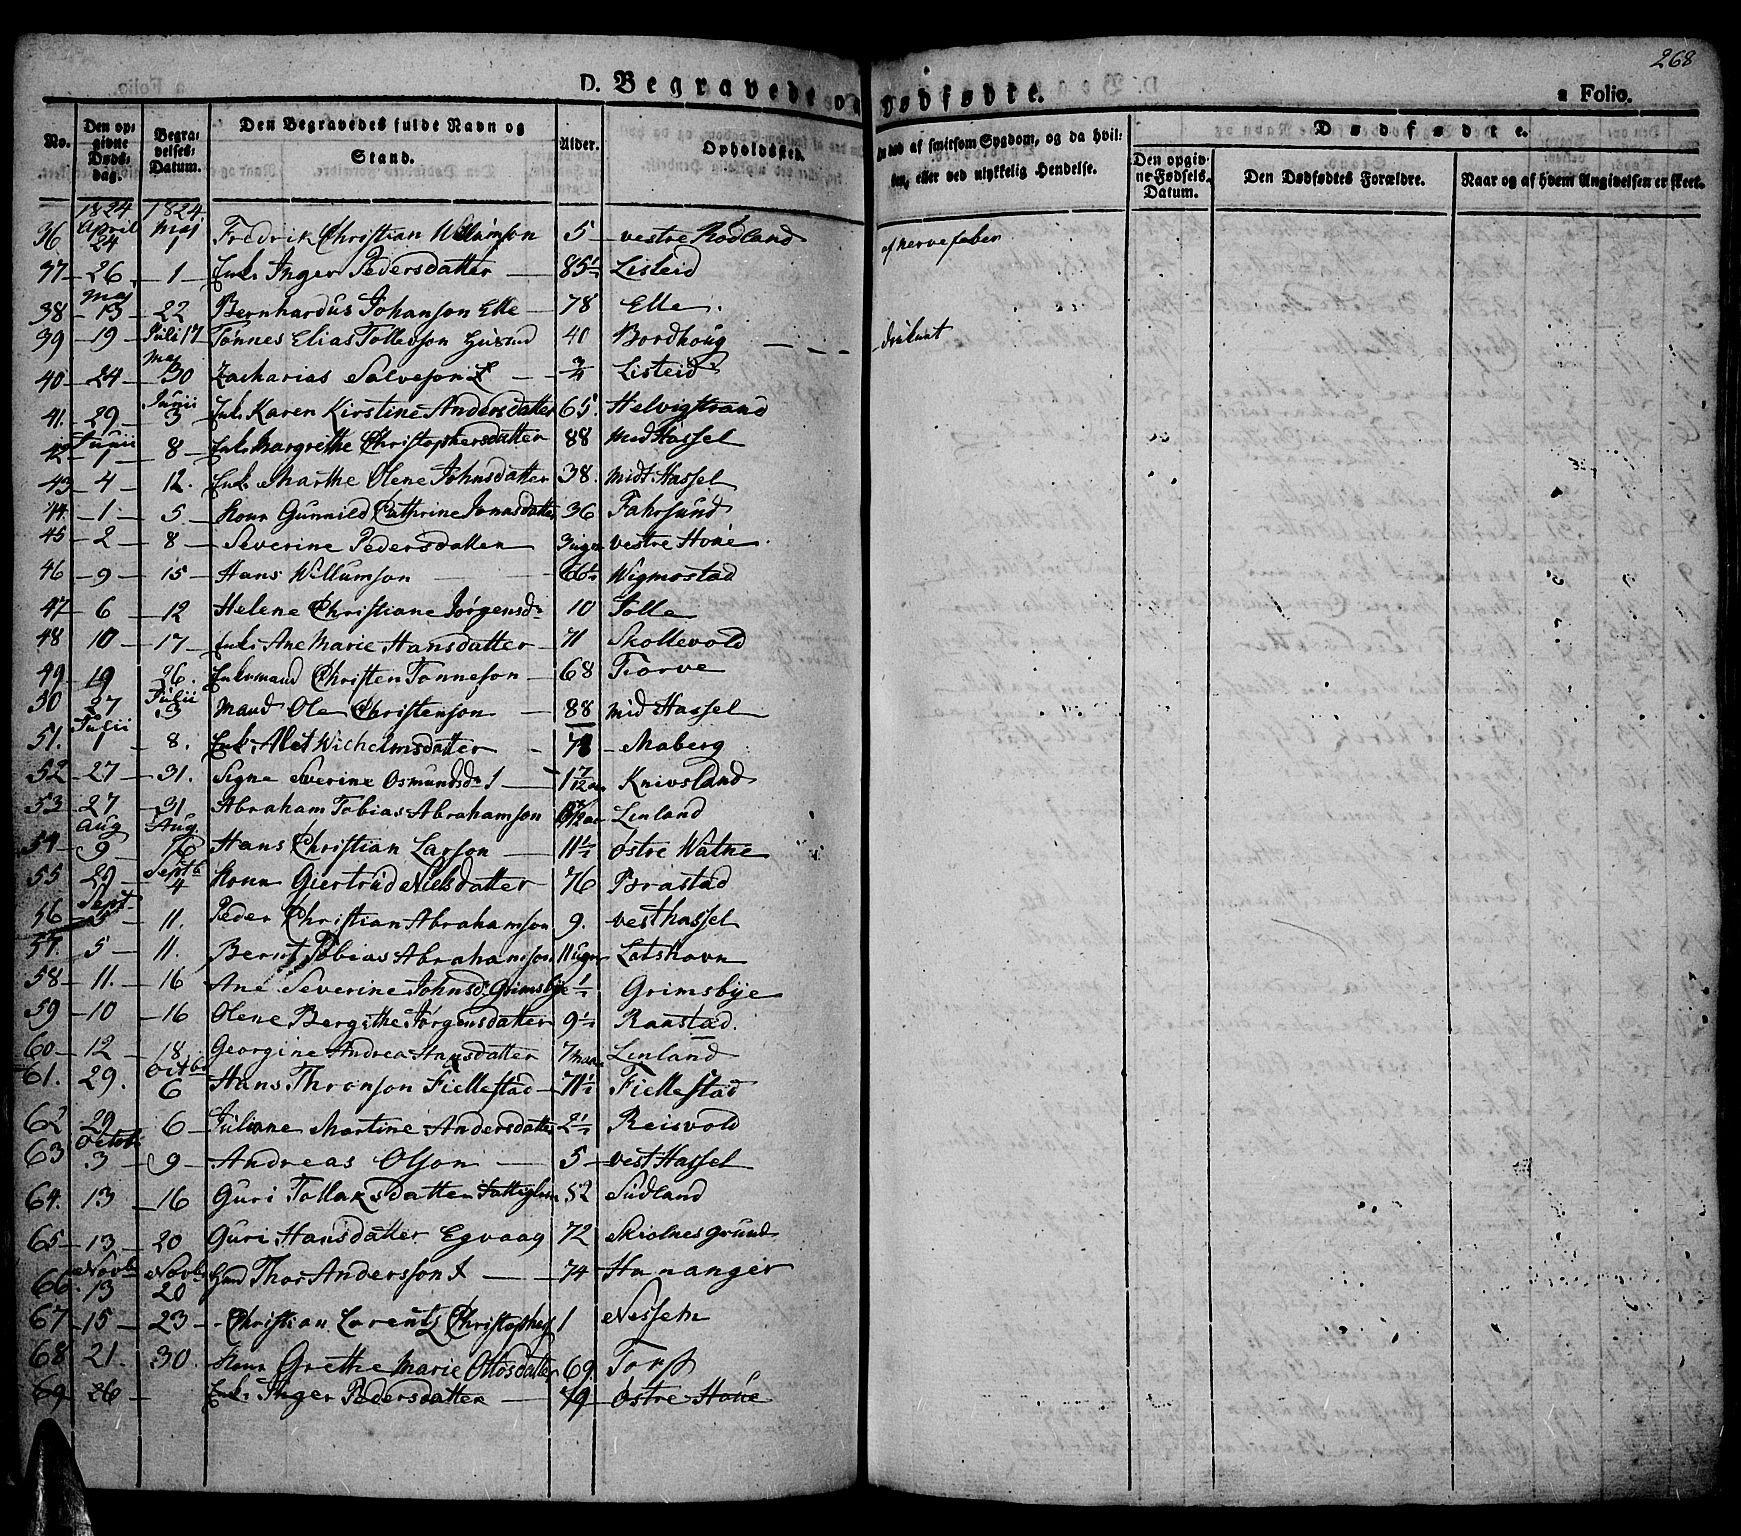 268
D. Begravede og Dødfødte.
a Folio.
No.
Den opgivne Døds-dag.
Begravelses-Datum.
Den Begravedes fulde Navn og Stand.
Alder.
Opholdssted.
død af smitsom Sygdom, og da hvilken, eller ved ulykkelig Hendelse.
Dødfødte.
Den opgivne Fødsels-Datum.
Den Dødfødtes Forældre.
Naar og af hvem Angivelsen er skeet.
1824 1824
36 April 24 Maj 1 Fredrik Christian Willumson 5 vestre Rødland af nervefeber
37 26 1 Enk. Inger Pedersdatter 85½ Listeid
38 Maj 13 22 Bernhardus Johanson Elle 78 Elle
39 19 Juli 17 Tönnes Elias Tollevson 40 Bordhoug druknet
40 24 Maj 30 Zacharias Salveson 3/4 Listeid
41. 29 Junii 3 Enk. Karen Kirstine Andersdatter 65. Helvigstrand
42 Junii 1 8 Enk. Margrethe Christophersdatter 88 Mid Hassel
43 4 12. Enk. Marthe Olene Johnsdatter 38. Midt Hassel
44. 1 5 Konn Gunnild Cathrine Jonasdatter 36 Fahrsund
45 2 8 Severine Pedersdatter 3 uger vestre Hoüe
46 9 15 Hans Willumson 66½ Wigmostad
47 6 12 Helene Christiane Jørgensdr 10 Tolle
48 10 17 Enk. Ane Marie Hansdatter 71 Skollevold
49 19 26. Enkemand Christen Tönneson 68 Tiorve
50 27 Julii 3 Mand Ole Christenson 88 Mid Hassel
51. Julii 1 8. Enk. Alet Wilhelmsdatter Maberg
52 27 31. Signe Severine Osmundsdr 1 7/12 Knivsland
53 27 31 Abraham Tobias Abrahamson Linland
54 Aug 9 Aug. 16 Hans Christian Larson 11½ Østre Watne
55 29 Septb 4 Konn Giertrud Nielsdatter 76 Brastad
56 Sept. 5 11. Peder Christian Abrahamson 9. vesthassel
57. 5 11. Bernt Tobias Abrahamson 11 uger Latshavn
58 11. 16 Ane Severine Johnsdr Grimsbÿe ½ Grimsbye
59 10 16 Olene Bergithe Jørgensdatter 9½ Raastad.
60 12 18 Georgine Andrea Hansdatter 7 maan Linland
61. 29. Octobr 6 Hans Thronson Fiellestad 71½ Fiellestad
62 29 6 Juliane Martine Andersdatter 2½ Reisvold
63 Octob. 3 9 Andreas Olson 5 vest Hassel
64. 13 16 Guri Tollaksdatter Fattiglem 52 Sudland
65 13 20 Guri Hansdatter Egvaag 72 Skiolnesgrund
66. Novb. 13 Novb. 20 Thor Andersson 74 Hananger
67 15 23 Christian Lorentz Christophers. 1 Nesseln
68 21. 30. Konn Grethe Marie Ottosdatter 69. Torp
69 26 Enk. Inger Pedersdatter 79 Østre Hoüe